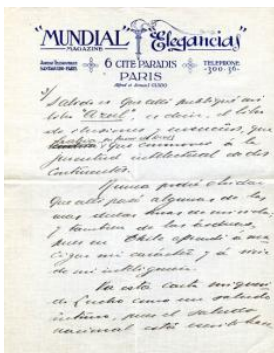 "MUNDIAL"
MAGAZINE
Elegancias
6 CITÉ PARADIS
PARIS
TELEPHONE
-300-36-
3/
Sabed es que allí publiqué mi
libro "Azul", es decir, el libro
de ilusiones y ensueños, que
que conmovió a la
juventud intelectual de dos
continentes.
Nunca podré olvidar
que allí pasé algunas de las
mas dulces horas de mi vida
y tambien de las arduas,
pues en Chile aprendí a ma
cizar mi carácter y á vivir
de mi inteligencia.
Va esta carta mi querido
de Lucho como un saludo
íntimo, pues el saludo
nacional está escrito